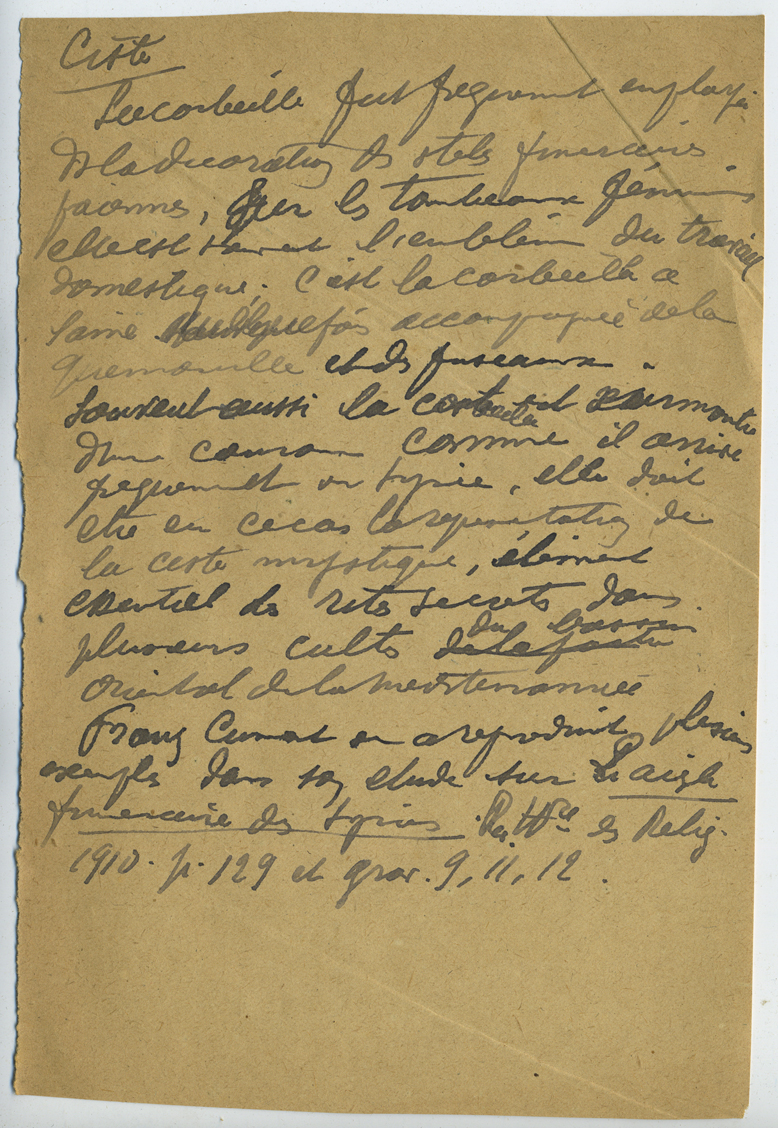 Ciste
La corbeille fut frequemment employée
ds la decoration des steles funeraires
paiennes, Sur les tombeaux féminins
elle est souvent l'emblème du travail
domestique; c'est la corbeille a
laine quelquefois accompagnée de la
quenouille et des fuseaux.
Souvent aussi la corbeille est surmontée
d'une couronne comme il arrive
frequemment en Syrie, elle doit
etre en ce cas la representation de
la ciste mystique, élément
essentiel des rites secrets dans
plusieurs cultes du bassin
oriental de la mediterrannée
Franz Cumont en a reproduit plusieurs
exemples dans son etude sur L'aigle
funeraire des Syriens Rev. Hre des Relig.
1910. p. 129 et grav. 9, 11, 12.